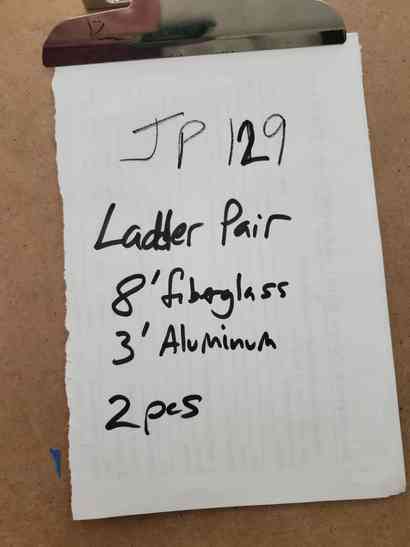 JP 129
Ladder Pair
8' fiberglass
3' Aluminum
2 pcs